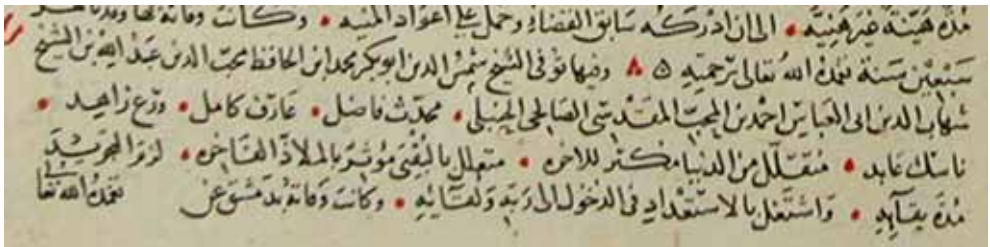 مدة هينة غير هنية • الى ان ادركه سابق القضاء وحمل على اعواد المنية • وكانت وفاته بها وقد ناهز
سبعين سنة تغمده الله تعالى برحمته ۵ ۸ وفيها توفى الشيخ شمس الدين ابو بكر محمد ابن الحافظ محب الدين عبد الله بن الشيخ
شهاب الدين ابى العباس احمد بن المحب المقدسى الصالحى الحنبلى • محدث فاضل • عارف كامل • ورع زاهد •
ناسك عابد • متقلل من الدنيا مكثر للاخره • متعلل باليقين مؤثر بالملاذ الفاخره • لزم التجريد
مدة بقآيه • واشتغل بالاستعداد فى الدخول الى ربه ولقائه • وكانت وفاته بدمشق عن تغمده الله تعالى